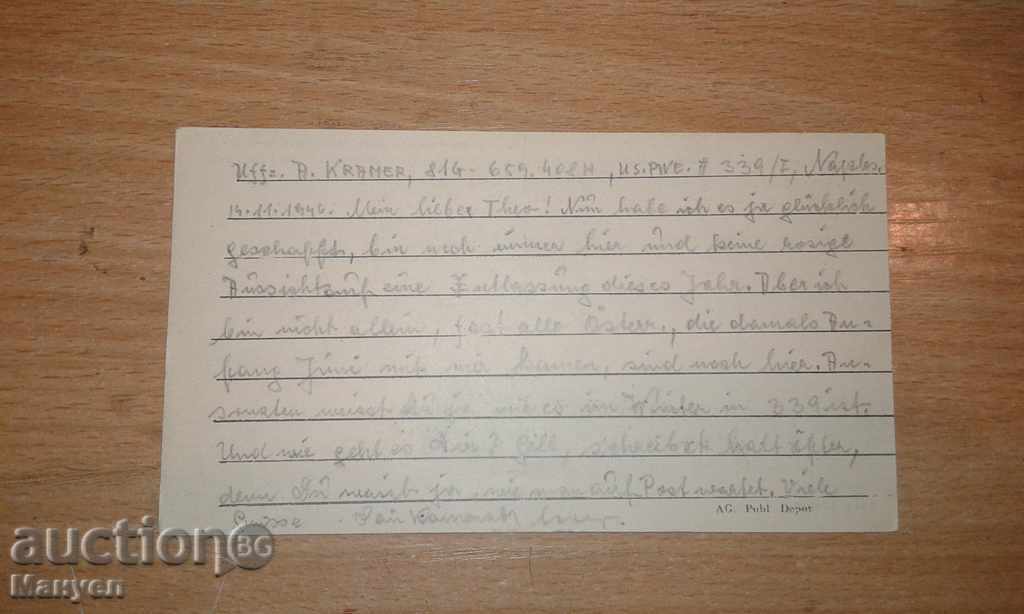 Uffz. A. KRAMER, 81G-659.408H, US.PWE. # 339/I, Naples.
14.11.1946. Mein lieber Theo! Nun habe ich es ja glücklich
geschafft, bin noch immer hier und keine rosige
Aussicht auf eine Entlassung dieses Jahr. Aber ich
bin nicht allein, fast alle Österr., die damals An-
fang Juni mit mir kamen, sind noch hier. An-
sonsten weisst Du ja wie es im Winter in 339 ist.
Und wie geht es Dir? Gell, schreibst halt öfter,
denn Du weisst ja, wie man auf Post wartet. Viele
Grüsse Dein Kamerad
AG. Publ Depot
auctionBG
Макуел